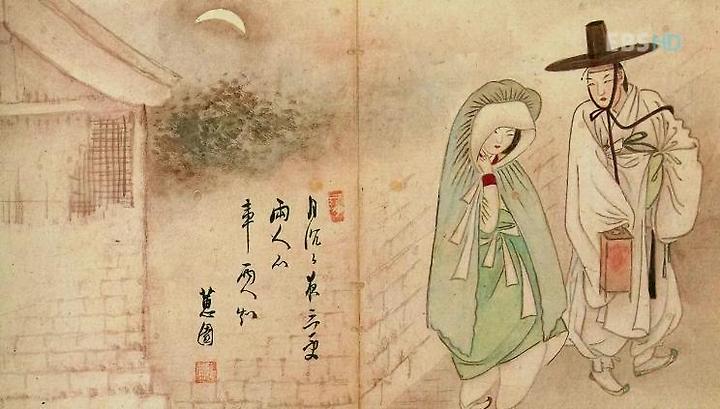 月沈〻夜三更
兩人心
事兩人知
蕙園
EBS HD